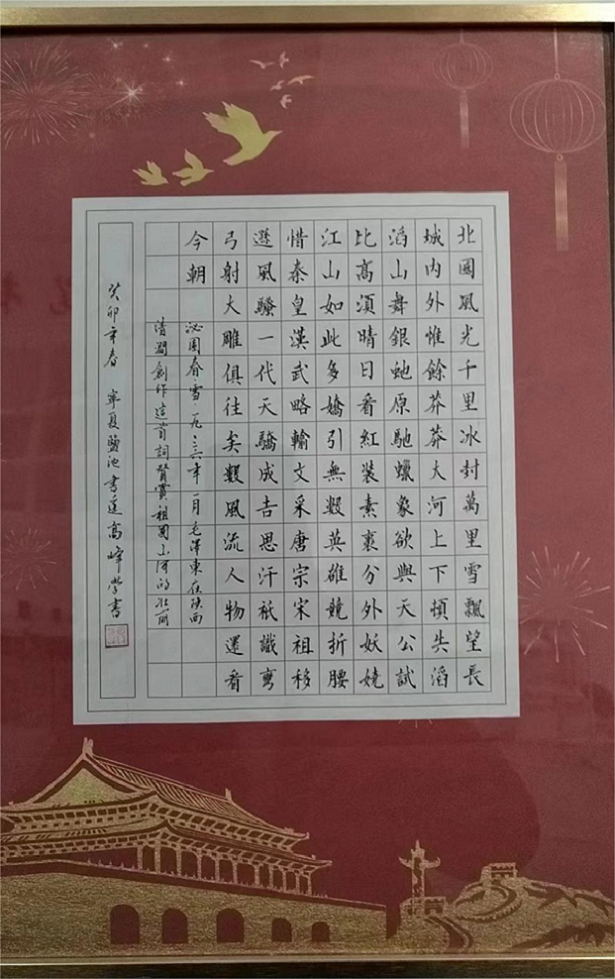 北國風光千里冰封萬里雪飄望長
城內外惟餘莽莽大河上下頓失滔
滔山舞銀虵原馳蠟象欲與天公試
比高湏晴日看紅裝素裹分外妖嬈
江山如此多嬌引無數英雄競折腰
惜秦皇漢武略輸文采唐宗宋祖移
遜風騷一代天驕成吉思汗祇識彎
弓射大雕俱往矣數風流人物還看
今朝
沁園春·雪 一九三六年一月毛澤東在陝西
清澗創作這首詞贊賞祖國山河的壯麗
癸卯年春 寧夏鹽池書道高峰學書